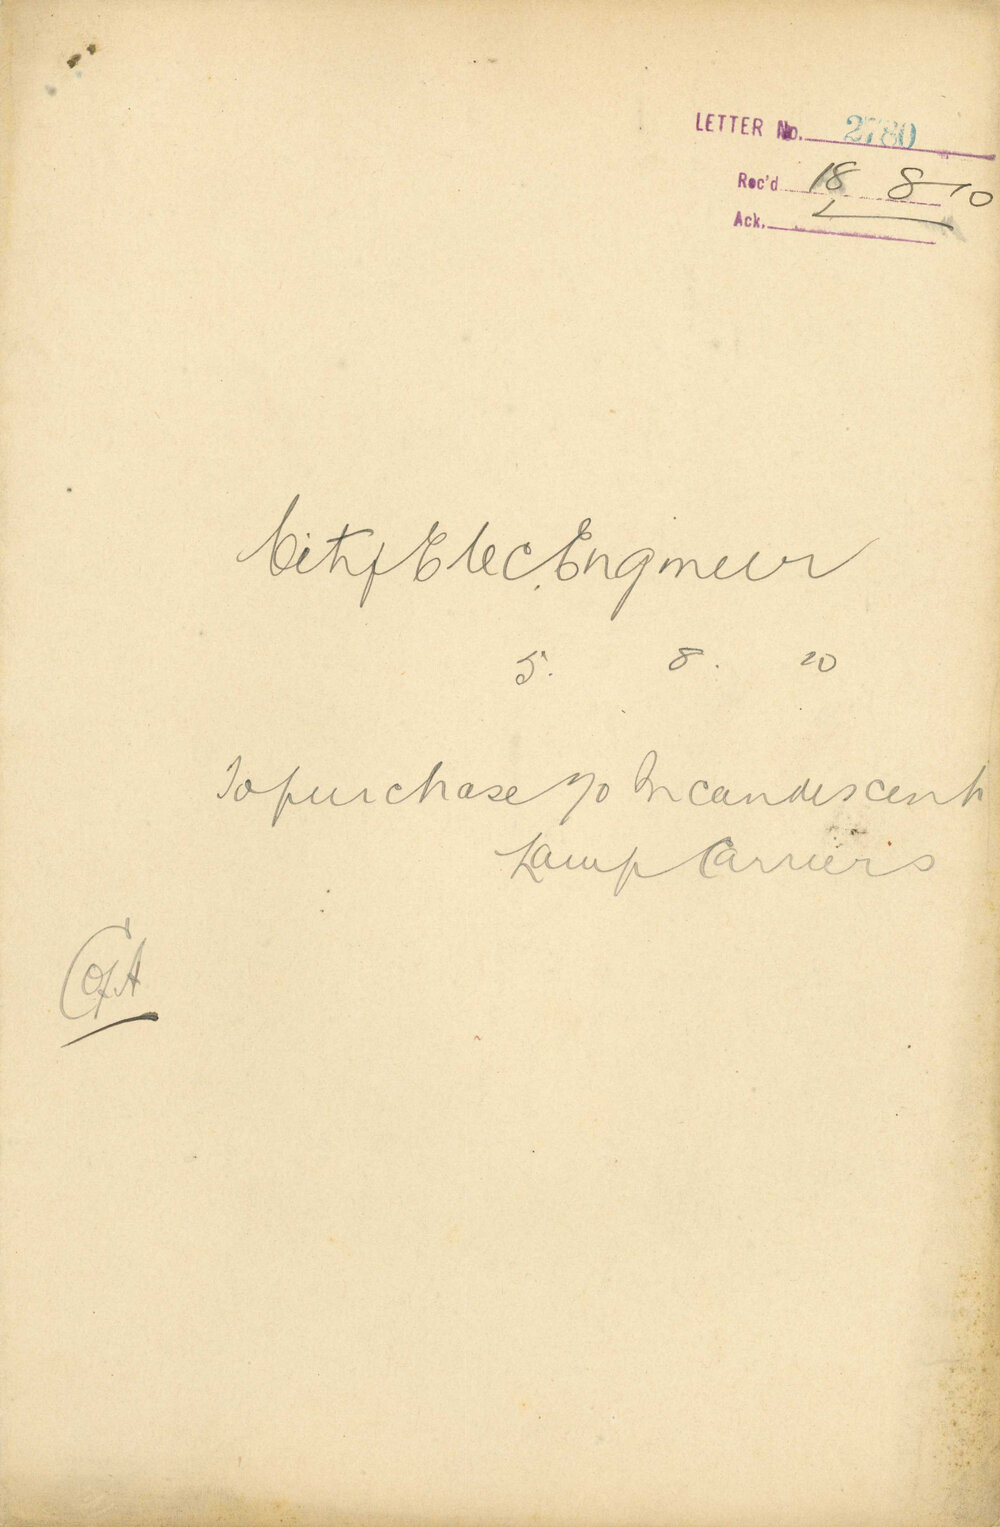 LETTER No. 2780
Rec'd 18 8 10
Ack.
City Elec. Engineer
5. 8. 10
To purchase 70 Incandescent
Lamp Carriers